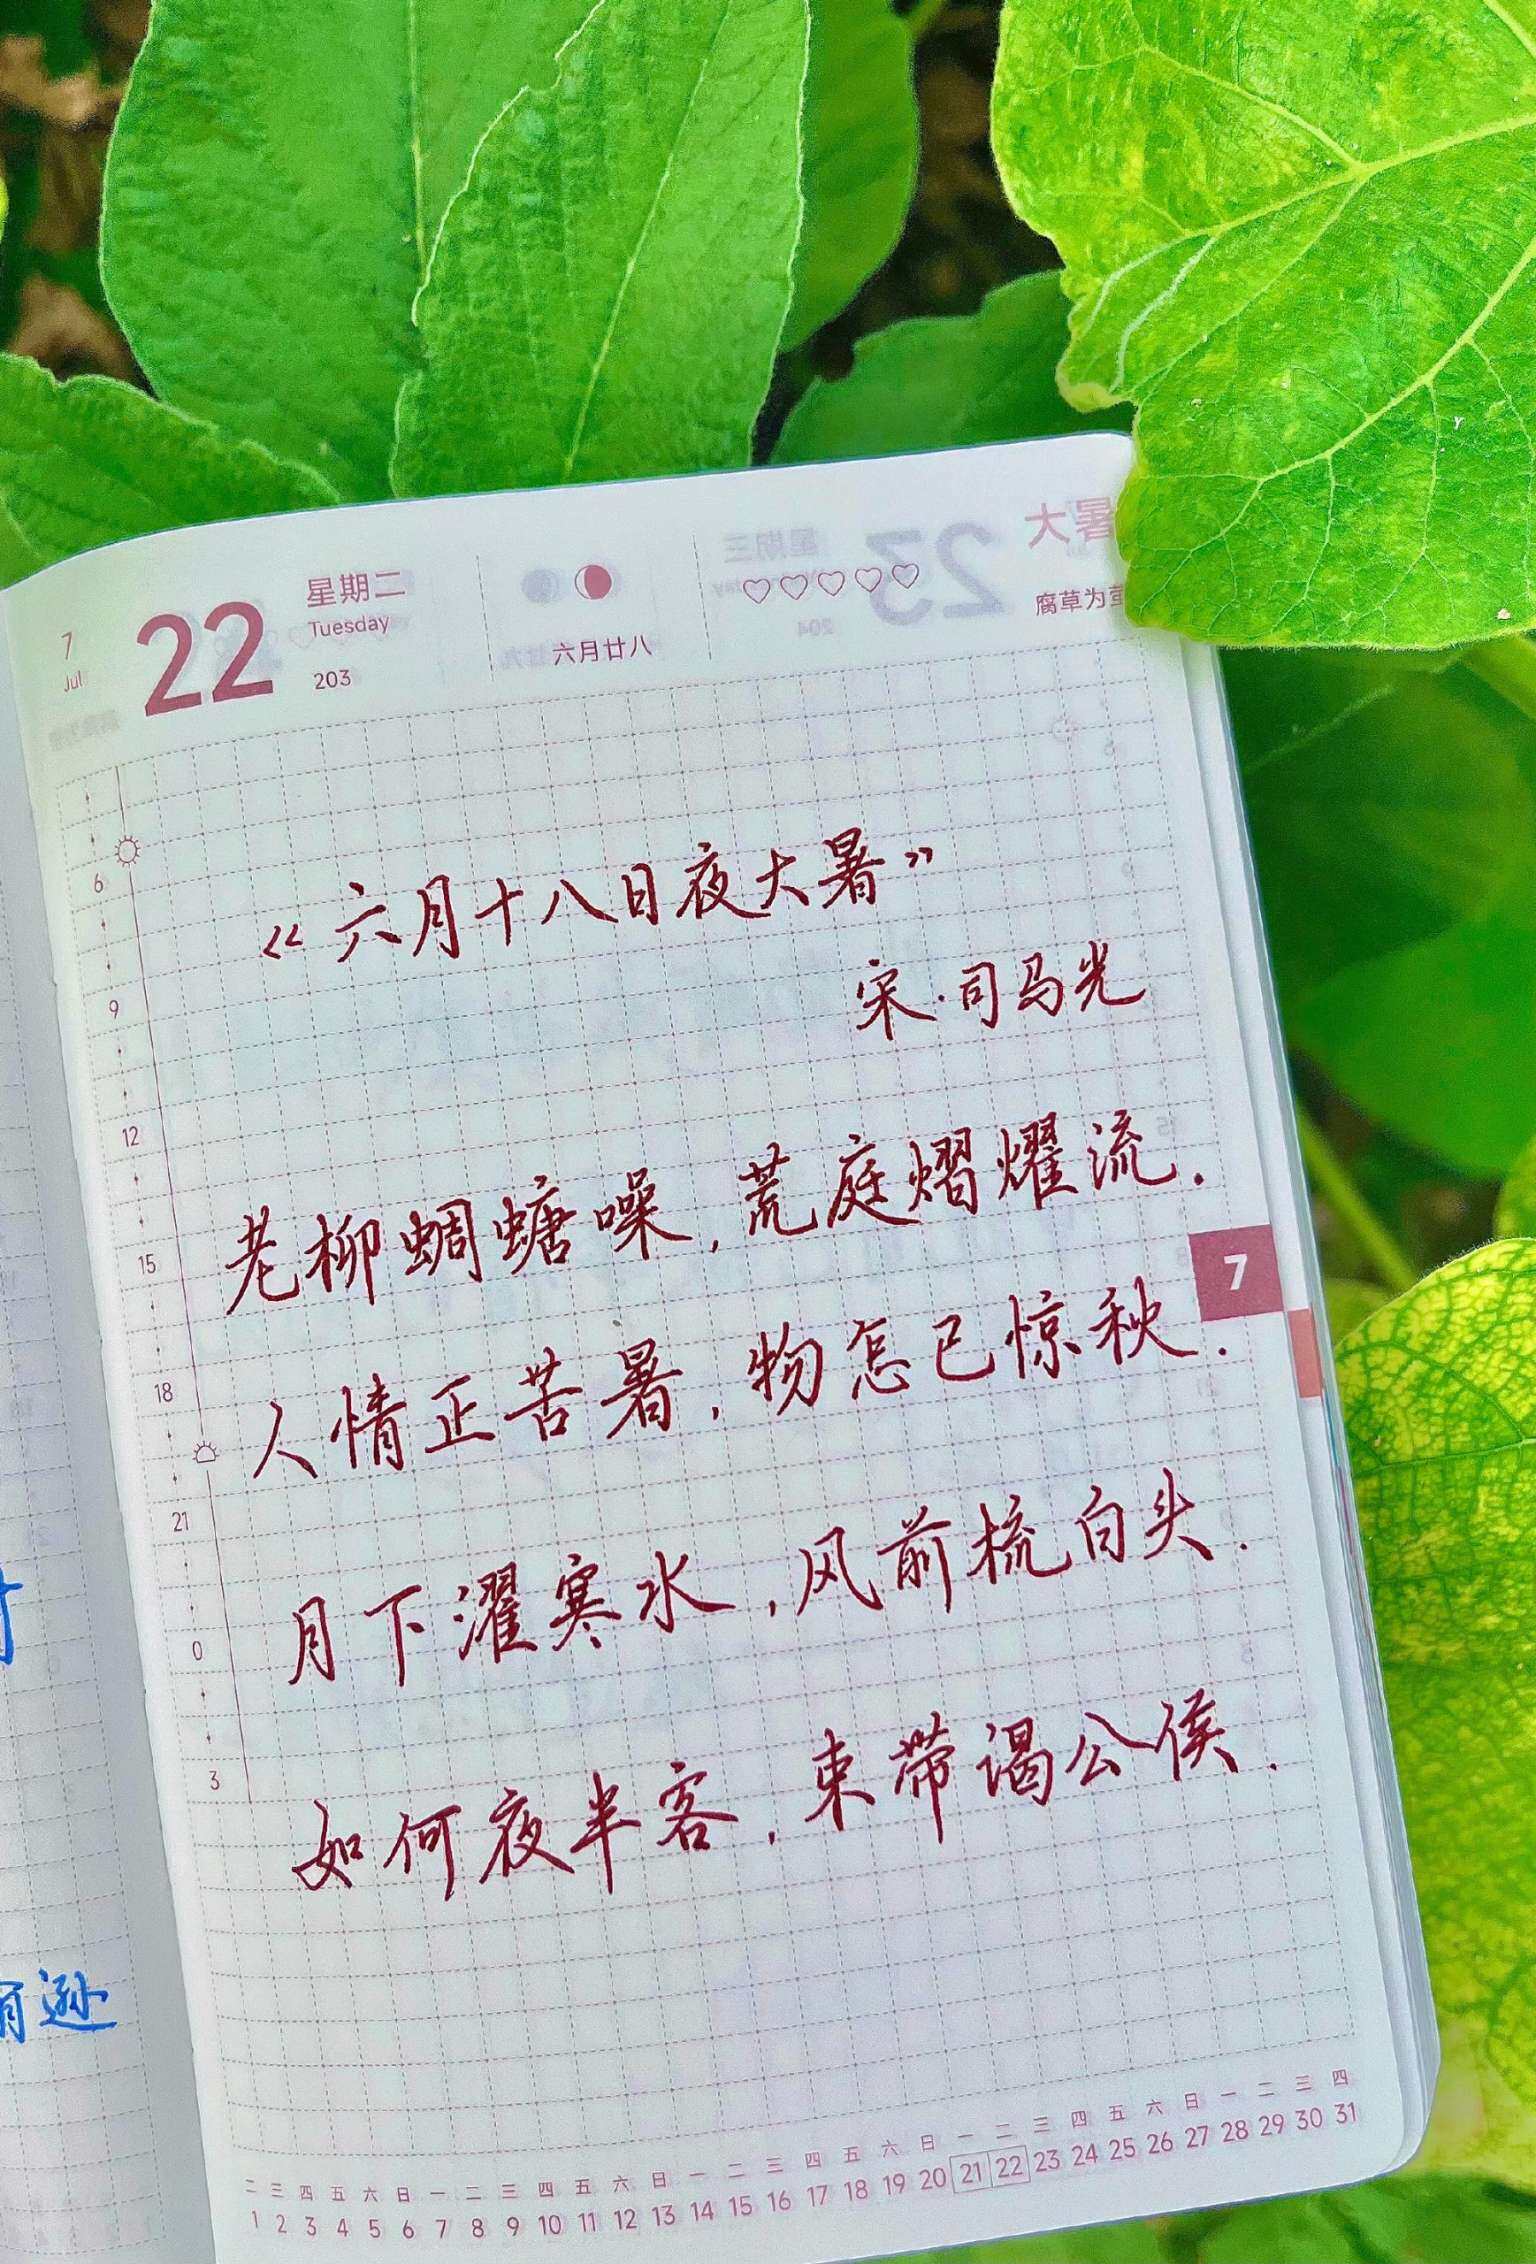 7
Jul
22
星期二
Tuesday
203
六月廿八
大暑
腐草为
《六月十八日夜大暑》
宋·司马光
老柳蜩螗噪,荒庭熠燿流.
人情正苦暑,物怎已惊秋.
月下濯寒水,风前梳白头.
如何夜半客,束带谒公侯.
6
9
12
15
18
21
0
3
7
逊
二 三 四 五 六 日 一 二 三 四 五 六 日 一 二 三 四 五 六 日 一 二 三 四 五 六 日 一 二 三 四
1 2 3 4 5 6 7 8 9 10 11 12 13 14 15 16 17 18 19 20 21 22 23 24 25 26 27 28 29 30 31